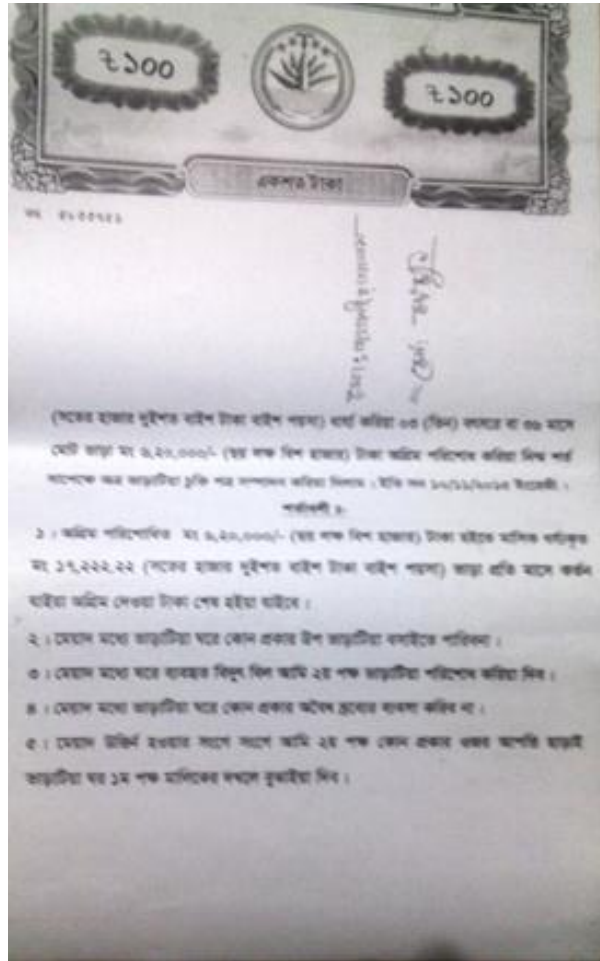 ৳১০০
৳১০০
একশত টাকা
(সতের হাজার দুইশত বাইশ টাকা বাইশ পয়সা) ধার্য্য করিয়া ০৩ (তিন) বৎসরে বা ৩৬ মাসে
মোট ভাড়া মং ৬,২০,০০০/- (ছয় লক্ষ বিশ হাজার) টাকা অগ্রিম পরিশোধ করিয়া নিম্ন শর্ত
সাপেক্ষে অত্র ভাড়াটিয়া চুক্তি পত্র সম্পাদন করিয়া দিলাম । ইতি সন ইংরেজী ।
শর্তাবলী ঃ-
১ । অগ্রিম পরিশোধিত মং ৬,২০,০০০/- (ছয় লক্ষ বিশ হাজার) টাকা হইতে মাসিক ধার্য্যকৃত
মং ১৭,২২২.২২ (সতের হাজার দুইশত বাইশ টাকা বাইশ পয়সা) ভাড়া প্রতি মাসে কর্তন
যাইয়া অগ্রিম দেওয়া টাকা শেষ হইয়া যাইবে ।
২ । মেয়াদ মধ্যে ভাড়াটিয়া ঘরে কোন প্রকার উপ ভাড়াটিয়া বসাইতে পারিবনা ।
৩ । মেয়াদ মধ্যে ঘরে ব্যবহৃত বিদ্যুৎ বিল আমি ২য় পক্ষ ভাড়াটিয়া পরিশোধ করিয়া দিব ।
৪ । মেয়াদ মধ্যে ভাড়াটিয়া ঘরে কোন প্রকার অবৈধ দ্রব্যের ব্যবসা করিব না ।
৫ । মেয়াদ উত্তির্ন হওয়ার সাথে সাথে আমি ২য় পক্ষ কোন প্রকার ওজর আপত্তি ছাড়াই
ভাড়াটিয়া ঘর ১ম পক্ষ মালিকের দখলে বুঝাইয়া দিব ।